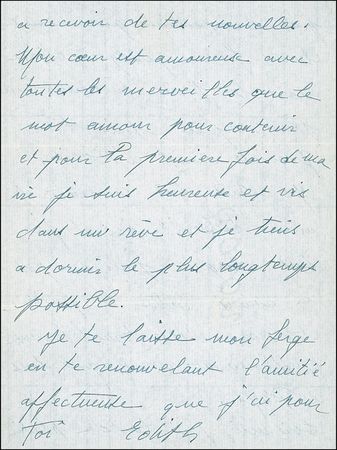 a recevoir de tes nouvelles.
Mon cœur est amoureuse avec
toutes les merveilles que le
mot amour pour contenir
et pour la premiere fois de ma
vie je suis heureuse et vis
dans un rêve et je tiens
a dormir le plus longtemps
possible.
Je te laisse mon
en te renouvelant l'amitié
affectueuse que j'ai pour
Toi Edith